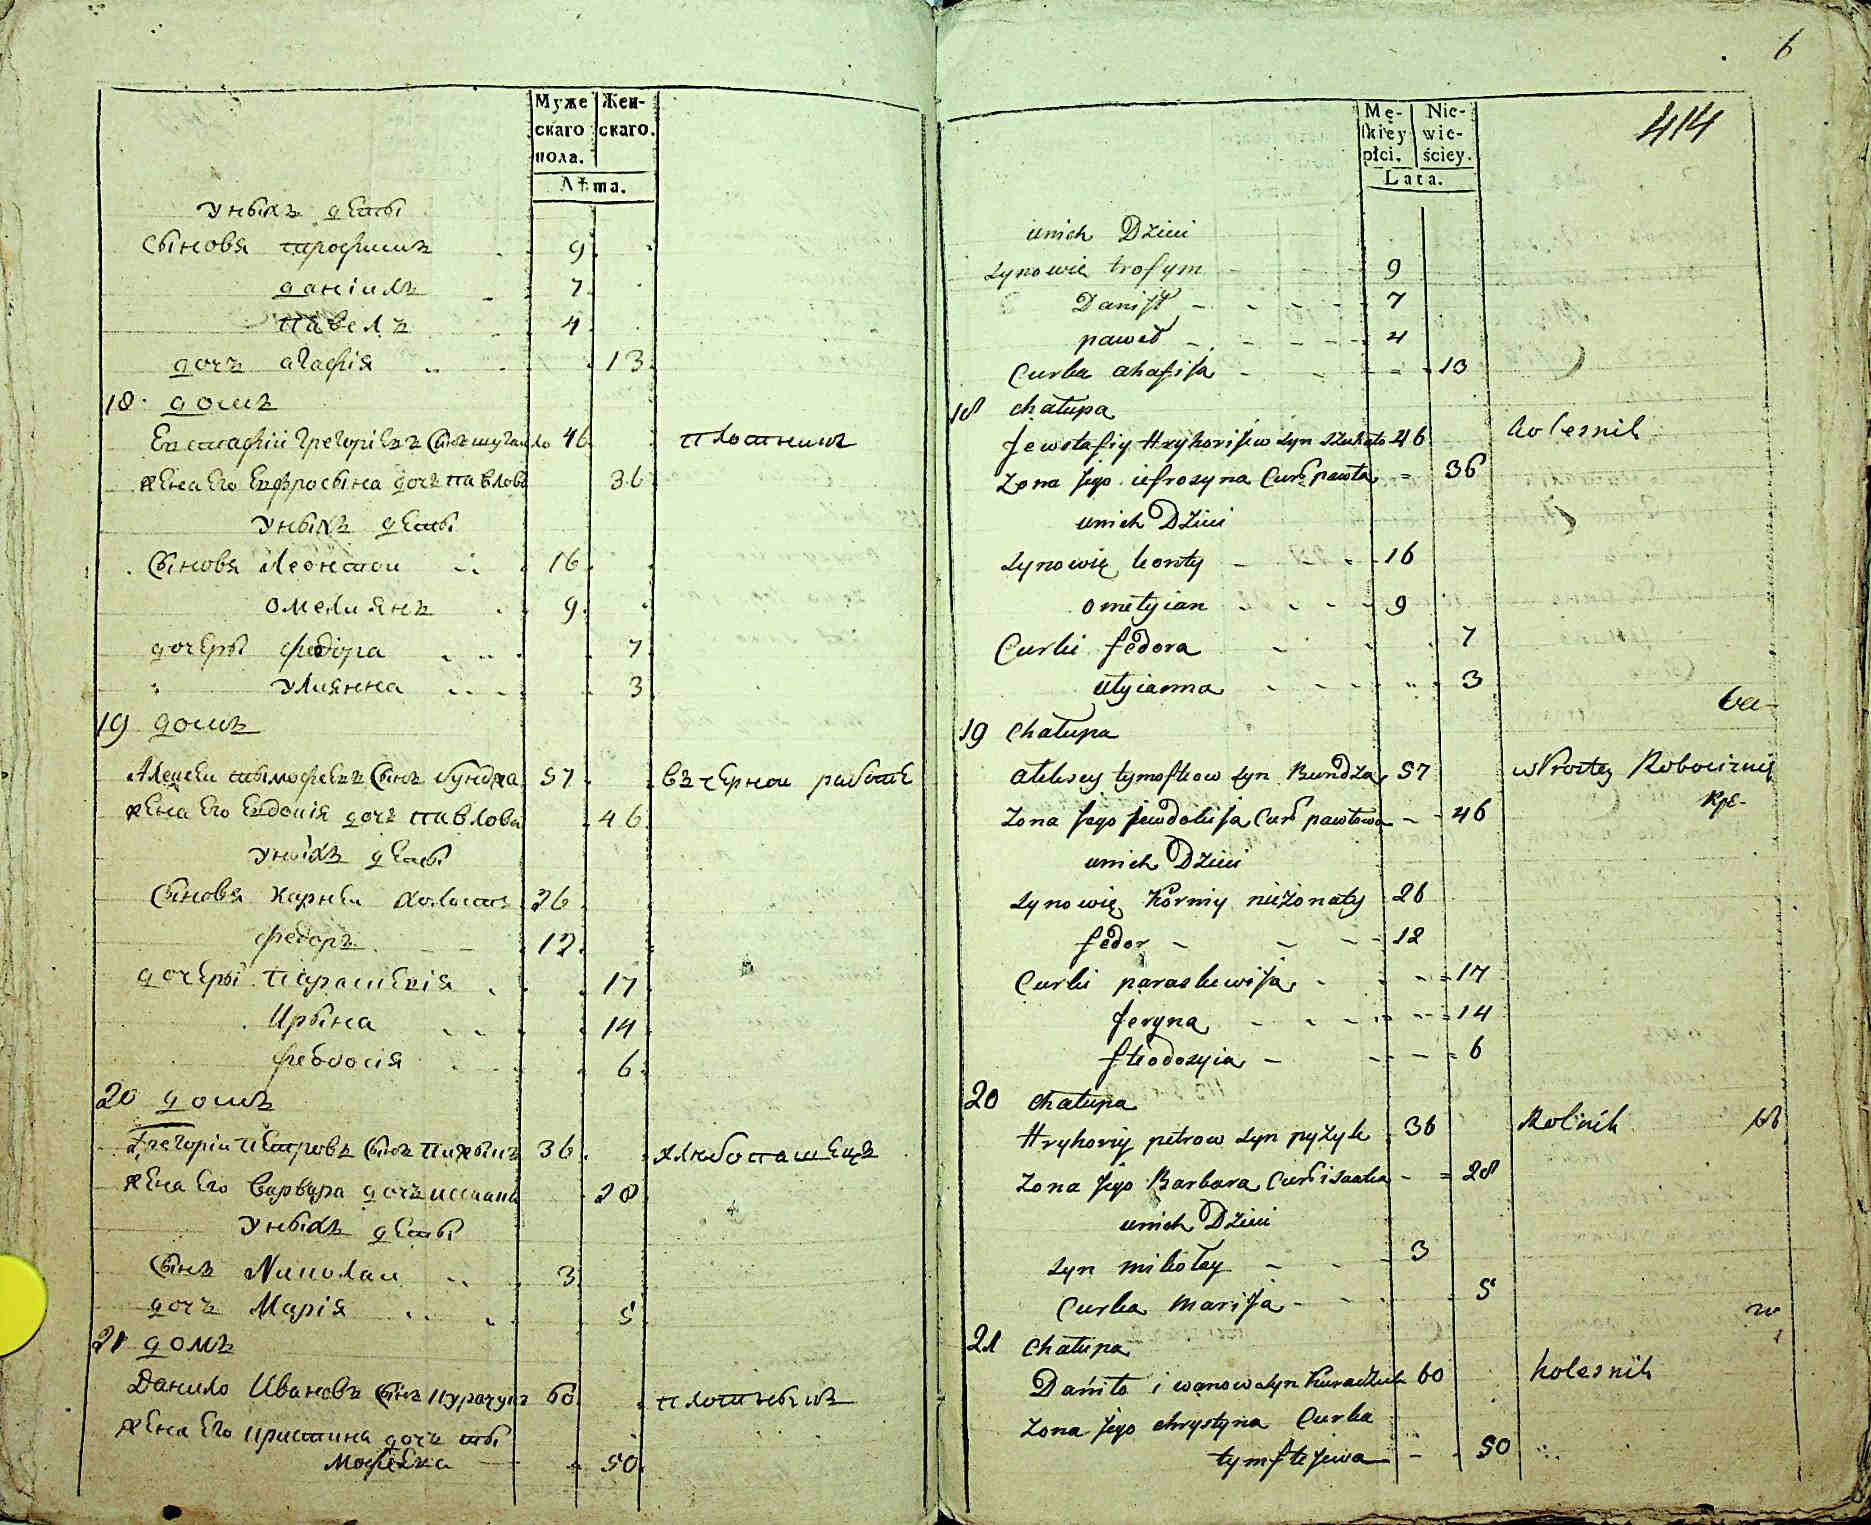 Муже
скаго
пола.
Жен-
скаго.
Лѣта.
У ныхъ дѣты
Сыновя трофимъ 9
даніилъ 7
павелъ 4
дочъ агафія 13
18 домъ
Евстафий Григоріевъ сынъ шукайло 46 плотникъ
жена его Евфросына дочъ павлова 36
У ныхъ дѣты
Сыновя Леонтой 16
омелиянъ 9
дочеры федора 7
улиянна 3
19 домъ
Алексеи тымофеевъ сынъ бундза 57 въ черной работе
жена его Евдокія дочъ павлова 46
У ныхъ дѣты
Сыновя карней холостъ 26
федоръ 12
дочеры параскевія 17
Ирына 14
феодосія 6
20 домъ
Григорій петровъ сынъ 36 хлѣбопашецъ
жена его варвара дочъ 28
У ныхъ дѣты
Сынъ Николай 3
дочъ Марія 5
21 домъ
Данило Ивановъ сынъ курачукъ 60 плотныкъ
жена его христина дочъ ты
мофеева 50
6
414
Mę-
skiey
płci.
Nie-
wie-
ściey.
Lata.
unich Dzieci
synowie trofym 9
Daniił 7
paweł 4
Curka ahafija 13
18 chałupa
Jewstafiy Hryhorijew syn szukało 46 kolesnik
Zona jego iefrosyna Curk pawła 36
unich Dzieci
synowie leonty 16
omelyian 9
Curki fedora 7
ulyianna 3
19 Chałupa
alexey tymofteow syn Bundza 57 w Prostey Robociznie
Zona jego jewdokija Curk pawłowa 46
unich Dzieci
synowie Korniy nieżonaty 26
fedor 12
Curki paraskewija 17
jeryna 14
fteodosyia 6
20 chałupa
Hryhoriy petrow syn pyzyk 36 Rolnik
Zona jego Barbara Curk isaaka 28
unich Dzieci
syn mikołay 3
Curka marija 5
21 Chałupa
Daniło iwanow syn Kuraczuk 60 kolesnik
Zona jego chrystyna Curka
tymftejewa 50